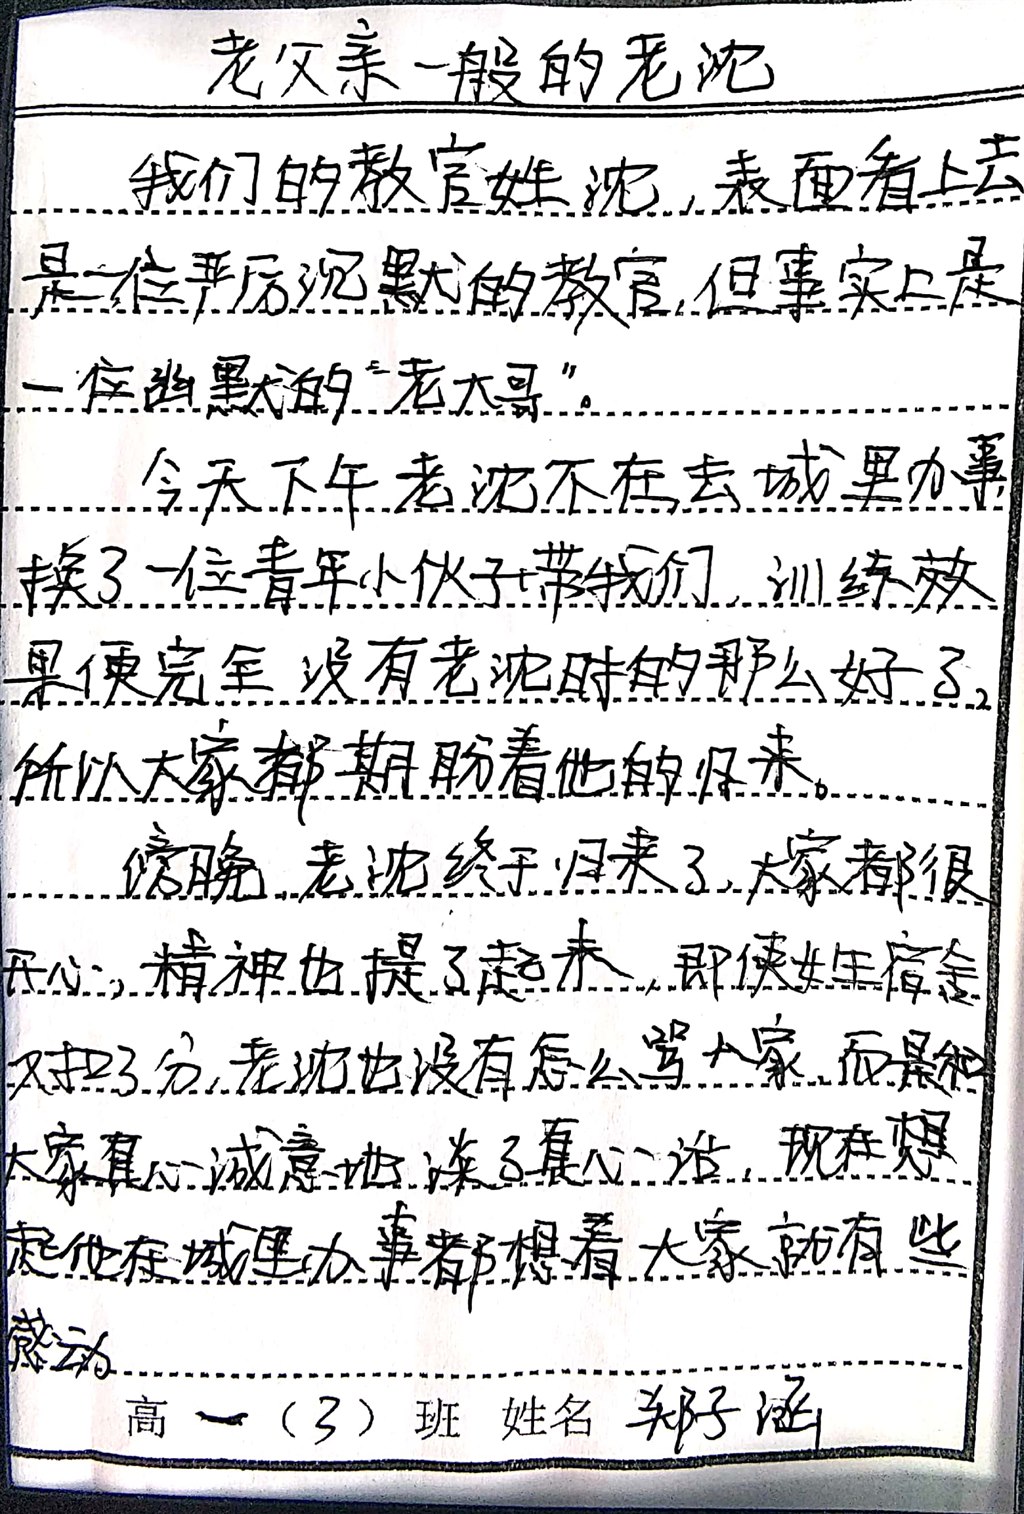 老父亲一般的老沈
我们的教官姓沈,表面看上去
是一位严厉沉默的教官,但事实上是
一位幽默的“老大哥”。
今天下午老沈不在去城里办事
换了一位青年小伙子带我们,训练效
果便完全没有老沈时的那么好了,
所以大家都期盼着他的归来。
傍晚,老沈终于归来了,大家都很
开心,精神也提了起来,即使女生宿舍
又扣3分,老沈也没有怎么骂大家,而是和
大家真心诚意地谈了真心话,现在想
起他在城里办事都想着大家就有些
感动
高一(3)班 姓名 郑子涵